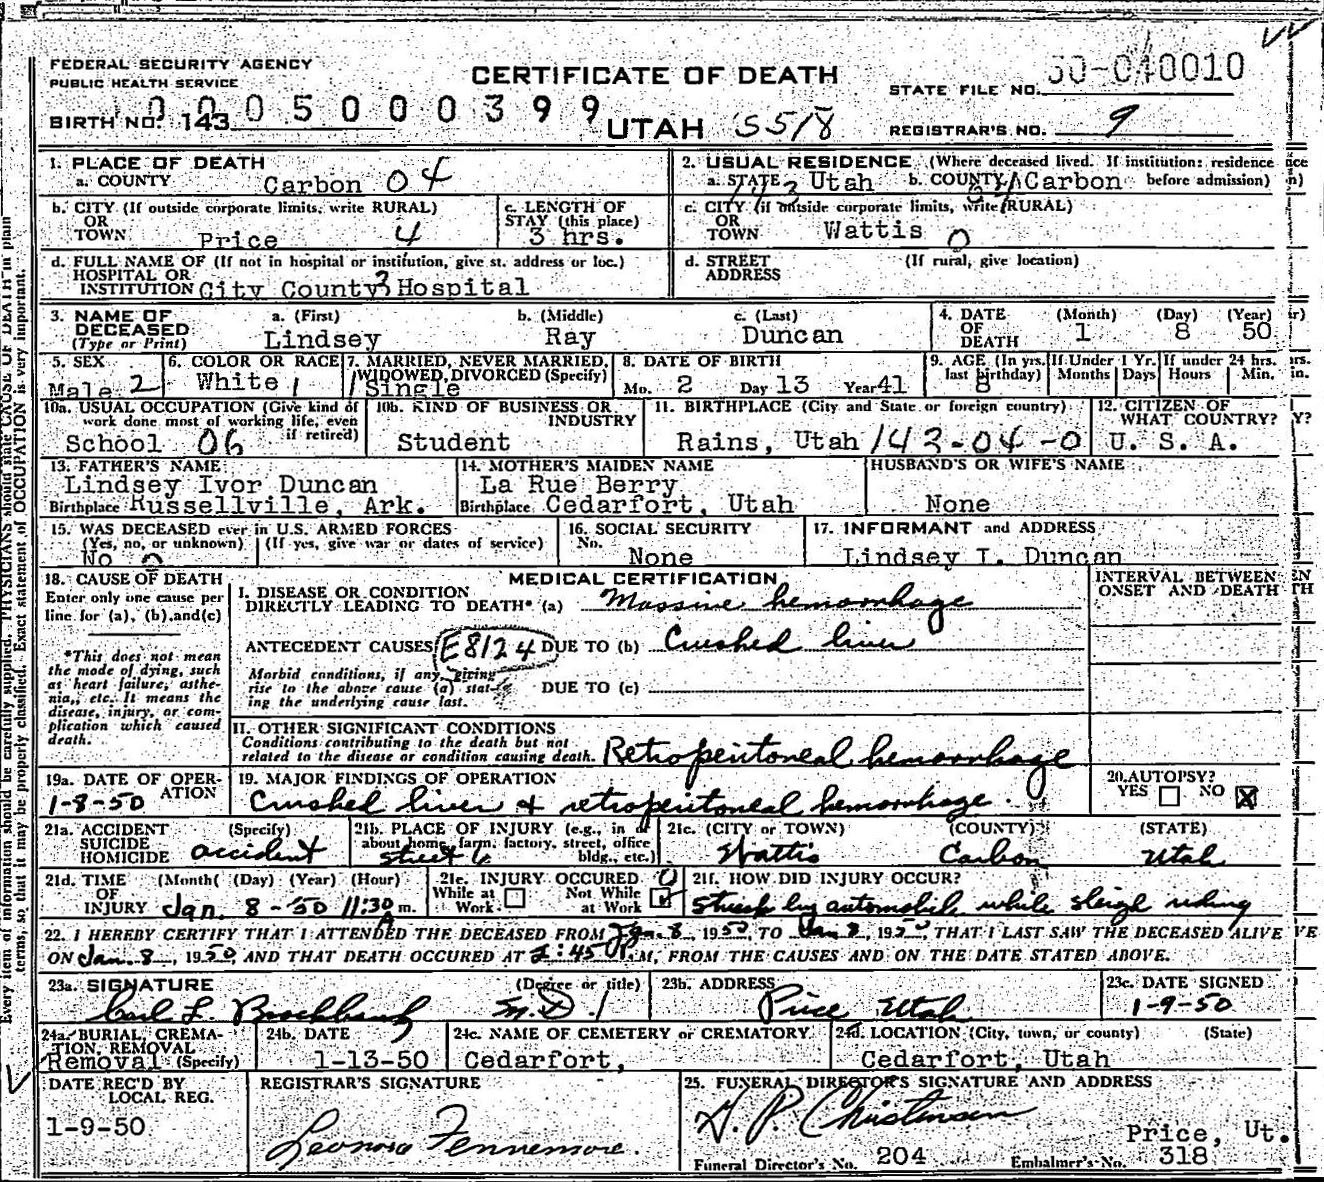 FEDERAL SECURITY AGENCY
PUBLIC HEALTH SERVICE
CERTIFICATE OF DEATH
STATE FILE NO. 50-040010
BIRTH NO. 143
0005000399
UTAH 5518
REGISTRAR'S NO. 9
1. PLACE OF DEATH
a. COUNTY Carbon 04
2. USUAL RESIDENCE (Where deceased lived. If institution: residence before admission)
a. STATE Utah b. COUNTY Carbon
b. CITY (If outside corporate limits, write RURAL)
OR
TOWN Price 4
c. LENGTH OF
STAY (this place)
3 hrs.
c. CITY (if outside corporate limits, write RURAL)
OR
TOWN Wattis 0
d. FULL NAME OF (If not in hospital or institution, give st. address or loc.)
HOSPITAL OR
INSTITUTION City County 3 Hospital
d. STREET (If rural, give location)
ADDRESS
3. NAME OF DECEASED (Type or Print)
a. (First) b. (Middle) c. (Last)
Lindsey Ray Duncan
4. DATE OF DEATH (Month) (Day) (Year)
1 8 50
5. SEX
Male 2
6. COLOR OR RACE
White 1
7. MARRIED, NEVER MARRIED, WIDOWED, DIVORCED (Specify)
1 Single
8. DATE OF BIRTH
Mo. 2 Day 13 Year 41
9. AGE (In yrs. last birthday) If Under 1 Yr. If under 24 hrs.
8 Months Days Hours Min.
10a. USUAL OCCUPATION (Give kind of work done most of working life, even if retired)
School 06
10b. KIND OF BUSINESS OR INDUSTRY
Student
11. BIRTHPLACE (City and State or foreign country)
Rains, Utah 143-04-0
12. CITIZEN OF WHAT COUNTRY?
U. S. A.
13. FATHER'S NAME
Lindsey Ivor Duncan
Birthplace Russellville, Ark.
14. MOTHER'S MAIDEN NAME
La Rue Berry
Birthplace Cedarfort, Utah
HUSBAND'S OR WIFE'S NAME
None
15. WAS DECEASED ever in U.S. ARMED FORCES
(Yes, no, or unknown) (If yes, give war or dates of service)
No 0
16. SOCIAL SECURITY
No. None
17. INFORMANT and ADDRESS
Lindsey I. Duncan
18. CAUSE OF DEATH
Enter only one cause per line for (a), (b), and (c)
*This does not mean the mode of dying, such as heart failure, asthenia, etc. It means the disease, injury, or complication which caused death.
MEDICAL CERTIFICATION
INTERVAL BETWEEN ONSET AND DEATH
I. DISEASE OR CONDITION
DIRECTLY LEADING TO DEATH* (a) Massive hemorrhage
ANTECEDENT CAUSES E8124 DUE TO (b) Crushed liver
Morbid conditions, if any, giving rise to the above cause (a) stating the underlying cause last.
DUE TO (c)
II. OTHER SIGNIFICANT CONDITIONS
Conditions contributing to the death but not related to the disease or condition causing death. Retroperitoneal hemorrhage
19a. DATE OF OPERATION
1-8-50
19. MAJOR FINDINGS OF OPERATION
Crushed liver & retroperitoneal hemorrhage.
20. AUTOPSY?
YES NO X
21a. ACCIDENT (Specify)
SUICIDE
HOMICIDE accident
21b. PLACE OF INJURY (e.g., in or about home, farm, factory, street, office bldg., etc.)
street 6
21c. (CITY or TOWN) (COUNTY) (STATE)
Wattis Carbon Utah
21d. TIME (Month) (Day) (Year) (Hour)
OF
INJURY Jan. 8-50 11:30 A m.
21e. INJURY OCCURED 0
While at Work Not While at Work
21f. HOW DID INJURY OCCUR?
Struck by automobile while sleigh riding
22. I HEREBY CERTIFY THAT I ATTENDED THE DECEASED FROM Jan. 8, 1950, TO Jan 8, 1950, THAT I LAST SAW THE DECEASED ALIVE
ON Jan. 8, 1950, AND THAT DEATH OCCURED AT 2:45 P.M, FROM THE CAUSES AND ON THE DATE STATED ABOVE.
23a. SIGNATURE (Degree or title)
Carl L. Brockbank M.D. 1
23b. ADDRESS
Price Utah
23c. DATE SIGNED
1-9-50
24a. BURIAL, CREMATION, REMOVAL (Specify)
Removal
24b. DATE
1-13-50
24c. NAME OF CEMETERY or CREMATORY
Cedarfort,
24d. LOCATION (City, town, or county) (State)
Cedarfort, Utah
DATE REC'D BY LOCAL REG.
1-9-50
REGISTRAR'S SIGNATURE
Leonora Fennemore.
25. FUNERAL DIRECTOR'S SIGNATURE AND ADDRESS
H. P. Christensen
Price, Ut.
Funeral Director's No. 204 Embalmer's No. 318
Every item of information should be carefully supplied. PHYSICIANS should state CAUSE OF DEATH in plain
terms, so that it may be properly classified. Exact statement of OCCUPATION is very important.